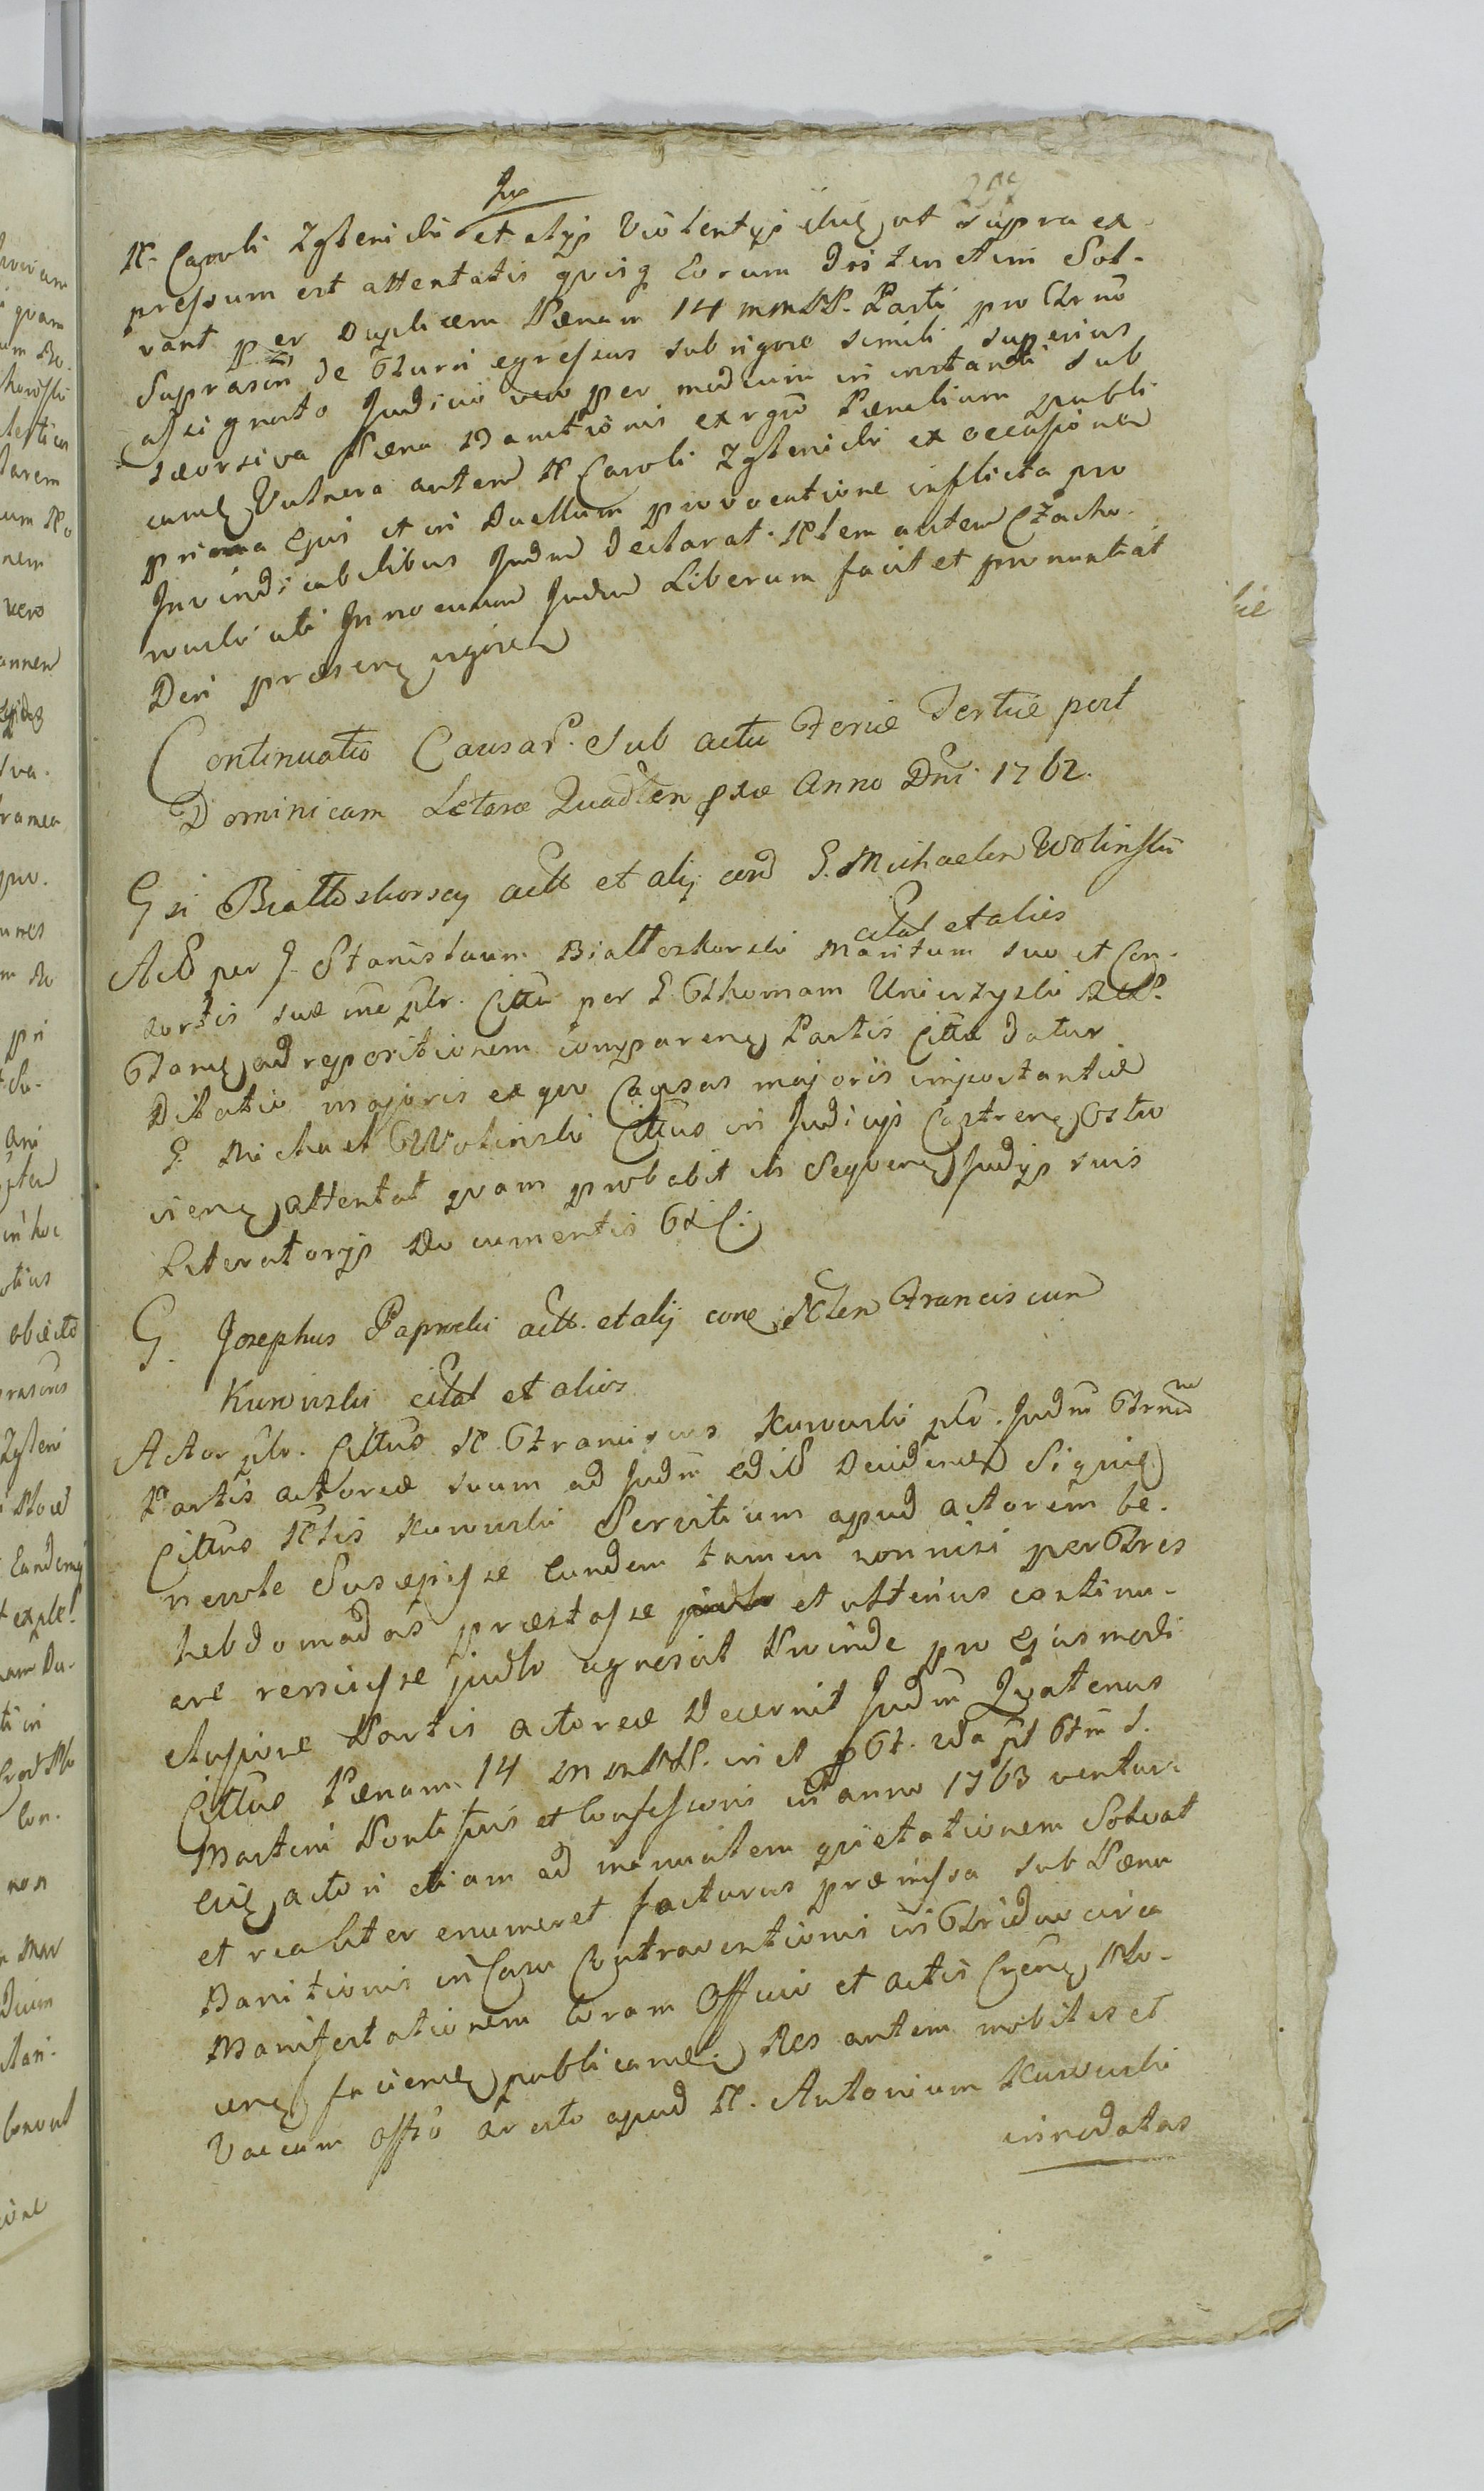 N. Caroli Zglenicki et alijs Violentijs iluc, ut supra ex-
pressum est attentatis quisq Eorum Distinctim Sol-
vant per Duplicem Pænam 14 mmPP. Parti pro Trno
Suprascri de Turri egressus sub rigore simili superius
assignato Judicio vero per mediam in instanti sub
seorsiva Pæna Banitionis ex rgro Pænalium publi
cane, Vulnera autem N Caroli Zglenicki ex occasione
prima Ejus et in Duellum provocatione inflicta pro
Invindicabilibus Judm declarat. Nlem autem Czacho-
wski uti Innocuum Judm Liberum facit et pronuntiat
Dcri præsenc, vigore
Continuatio Causar. Sub actu Feriæ Tertiæ post
Dominicam Letare Quadlen pxæ Anno Dni 1762.
Gsi Białłoskorscy actt et alij con G. Michaelem Wolinski
citat et alios
Acto per G. Stanislaum Białłoskorski Maritum suo et Con-
sortis suæ nne plr. Citti per G. Thomam Unierzyski
Stanc, ad repositionem comparenc, Partis Cittæ datur
Dilatio majoris ex quo Causas majoris importantiæ
G. Michael Wolinski Cittus in Judicijs Castrenc, Ostro
lenc, attentat quam probabit in Sequenc, Judijs suis
Literatorijs Documentis
G. Josephus Paprocki actt. et alij con Nlem Franciscum
Kurowski citat et alios
Actor plr. Cittus N. Franciscus Kurowski plr. Judm Trmno
Partis actoreæ suum ad Judm edito Decidenc Siquid
Cittus Nlis Kurowski Servitium apud actorem be-
nevole Suscepisse Eundem tamen nonnisi per Tres
hebdomadas præstasse et ulterius continu-
are renuisse judlr agnoscit Proinde pro Ejusmodi
Ausione Partis actoreæ Decernit Judm Quatenus
Cittus Pænam 14 mmPP. in et p Ft. S.
Martini Pontificis et Confessoris in anno 1763 ventur.
Eid, actori etiam ad manualem quietationem Solvat
et realiter enumeret facturus præmissa sub Pæna
Banitionis in Casu Contraventionis in Triduo circa
Manifestationem Coram Officio et actis Crenc,
cenc, facienc, publicanc, Res autem mobiles et
Vaccam Offso aresto apud N. Antonium Kurowski
innodatas